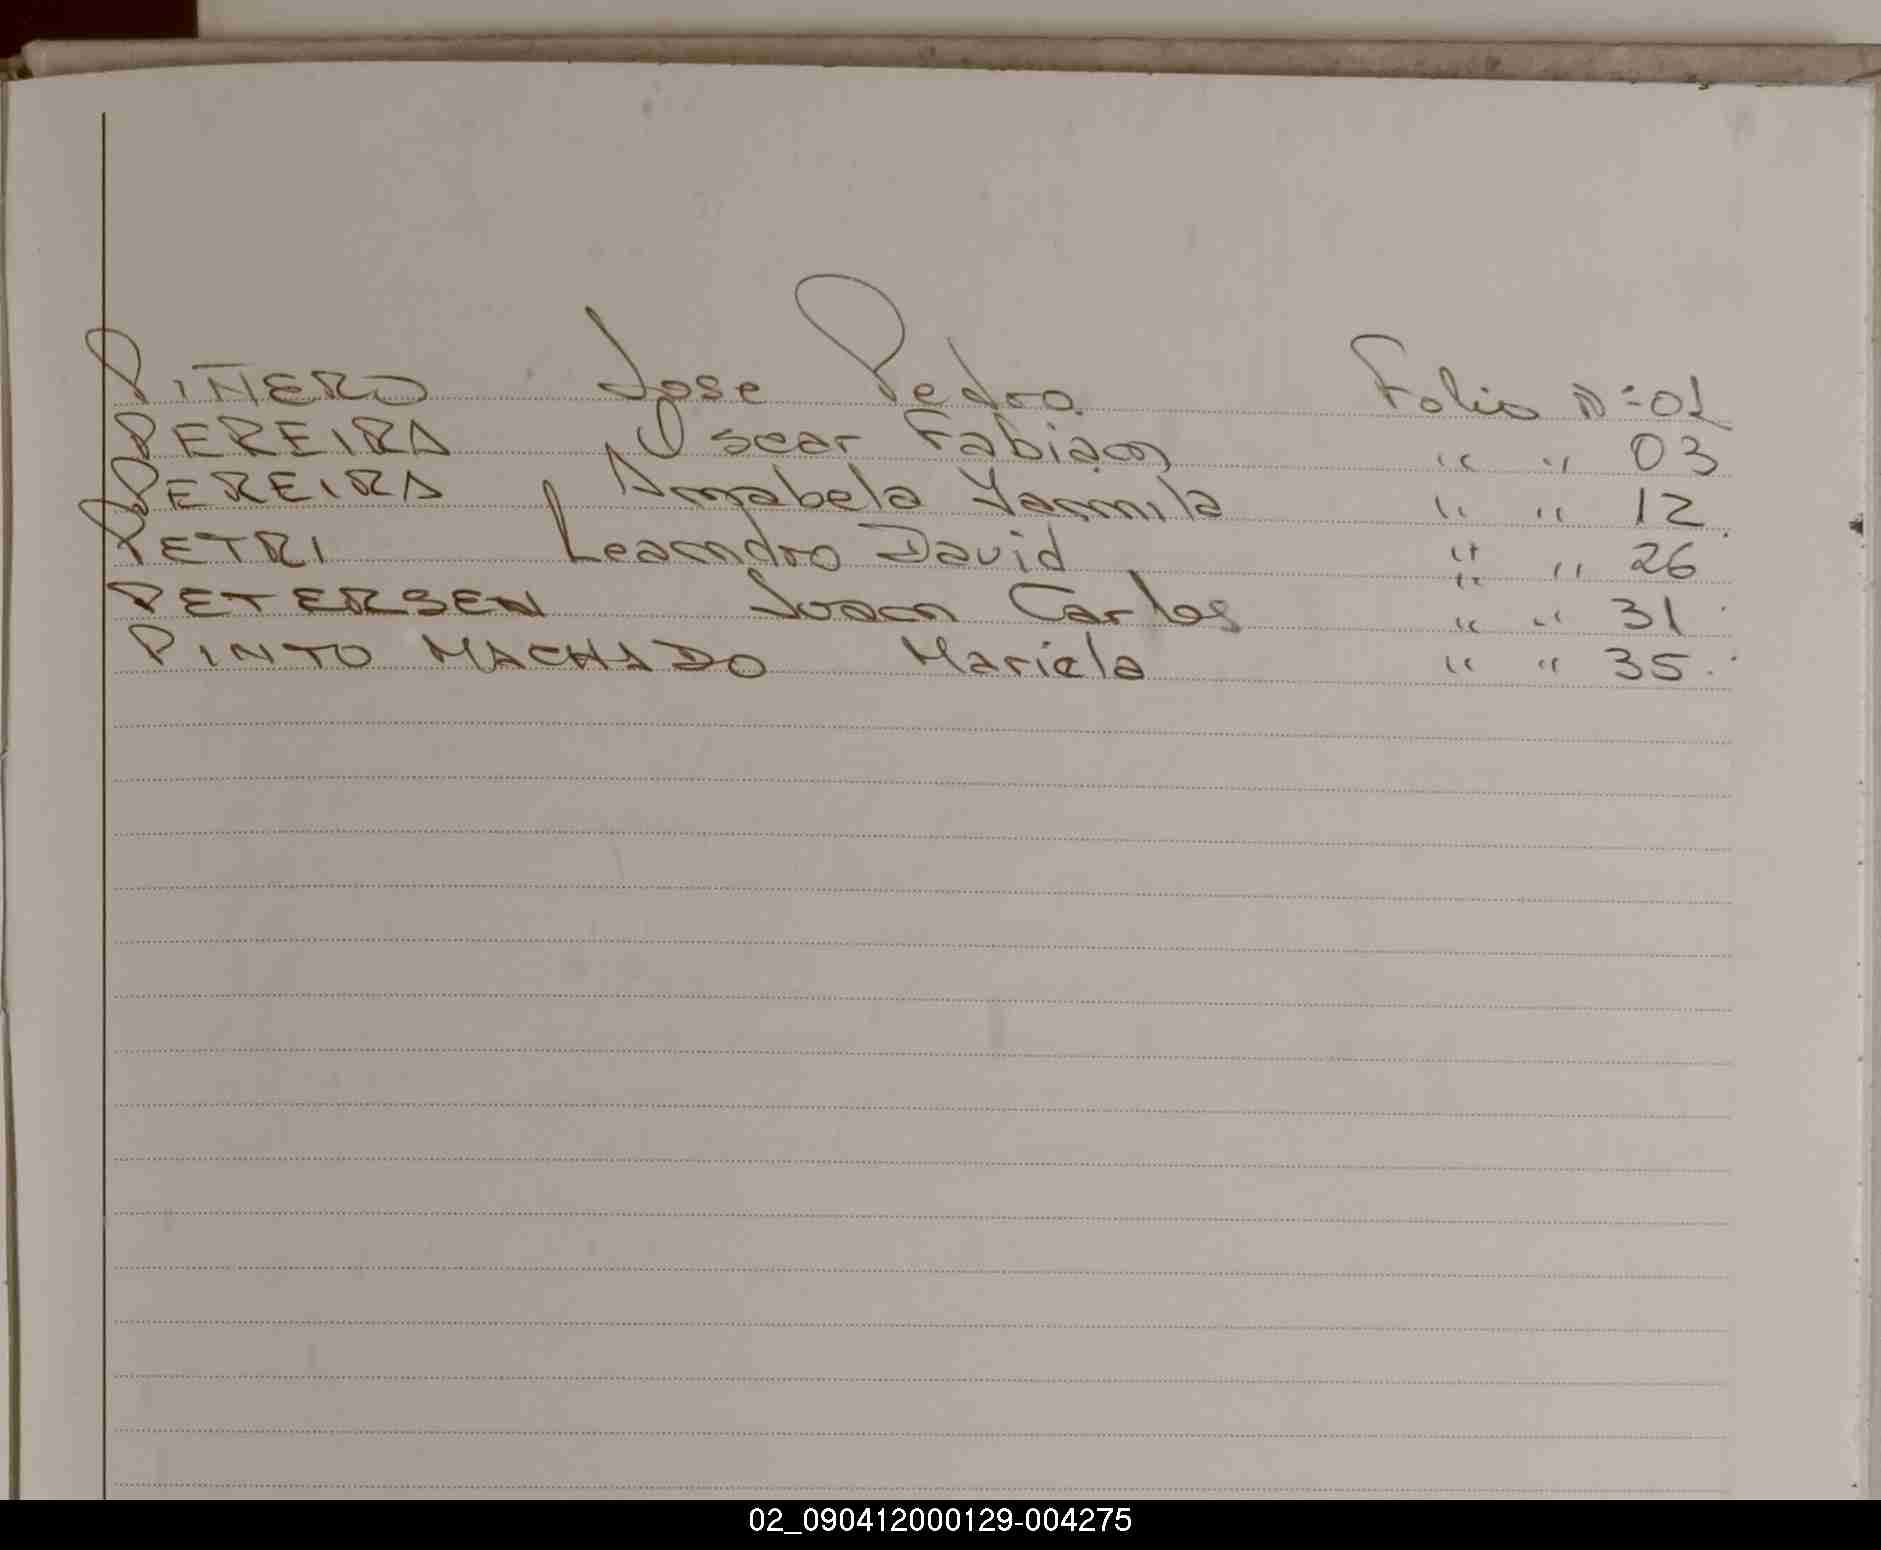 PIÑERO Jose Pedro Folio N=01
PEREIRA Oscar Fabian " " 03
PEREIRA Anabela Yamila " " 12
PETRI Leandro David " " 26
PETERSEN Juan Carlos " " 31
PINTO MACHADO Mariela " " 35
02_090412000129-004275